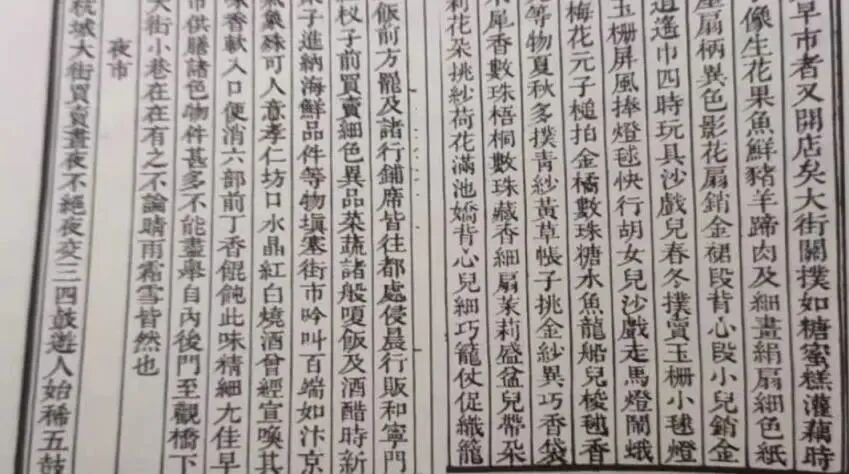 早市者又開店矣大街關撲如糖蜜糕灌藕時
像生花果魚鮮豬羊蹄肉及細畫絹扇細色紙
扇柄異色影花扇銷金裙段背心段小兒銷金
逍遙巾四時玩具沙戲兒春冬撲賣玉柵小毬燈
玉柵屏風捧燈毬快行胡女兒沙戲走馬燈鬧蛾
梅花元子槌拍金橘數珠糖水魚龍船兒梭毬香
等物夏秋多撲青紗黃草帳子挑金紗異巧香袋
犀香數珠梧桐數珠藏香細扇茉莉盛盆兒帶朶
莉花朶挑紗荷花滿池嬌背心兒細巧籠仗促織籠
飯前方罷及諸行鋪席皆往都處侵晨行販和寧門
杈子前買賣細色異品菜蔬諸般嗄飯及酒醋時新
子進納海鮮品件等物塡塞街市吟叫百端如汴京
氣象殊可人意孝仁坊口水晶紅白燒酒曾經宣喚其
味香軟入口便消六部前丁香餛飩此味精細尤佳早
市供膳諸色物件甚多不能盡舉自內後門至觀橋下
大街小巷在在有之不論晴雨霜雪皆然也
夜市
杭城大街買賣晝夜不絕夜交三四鼓遊人始稀五鼓